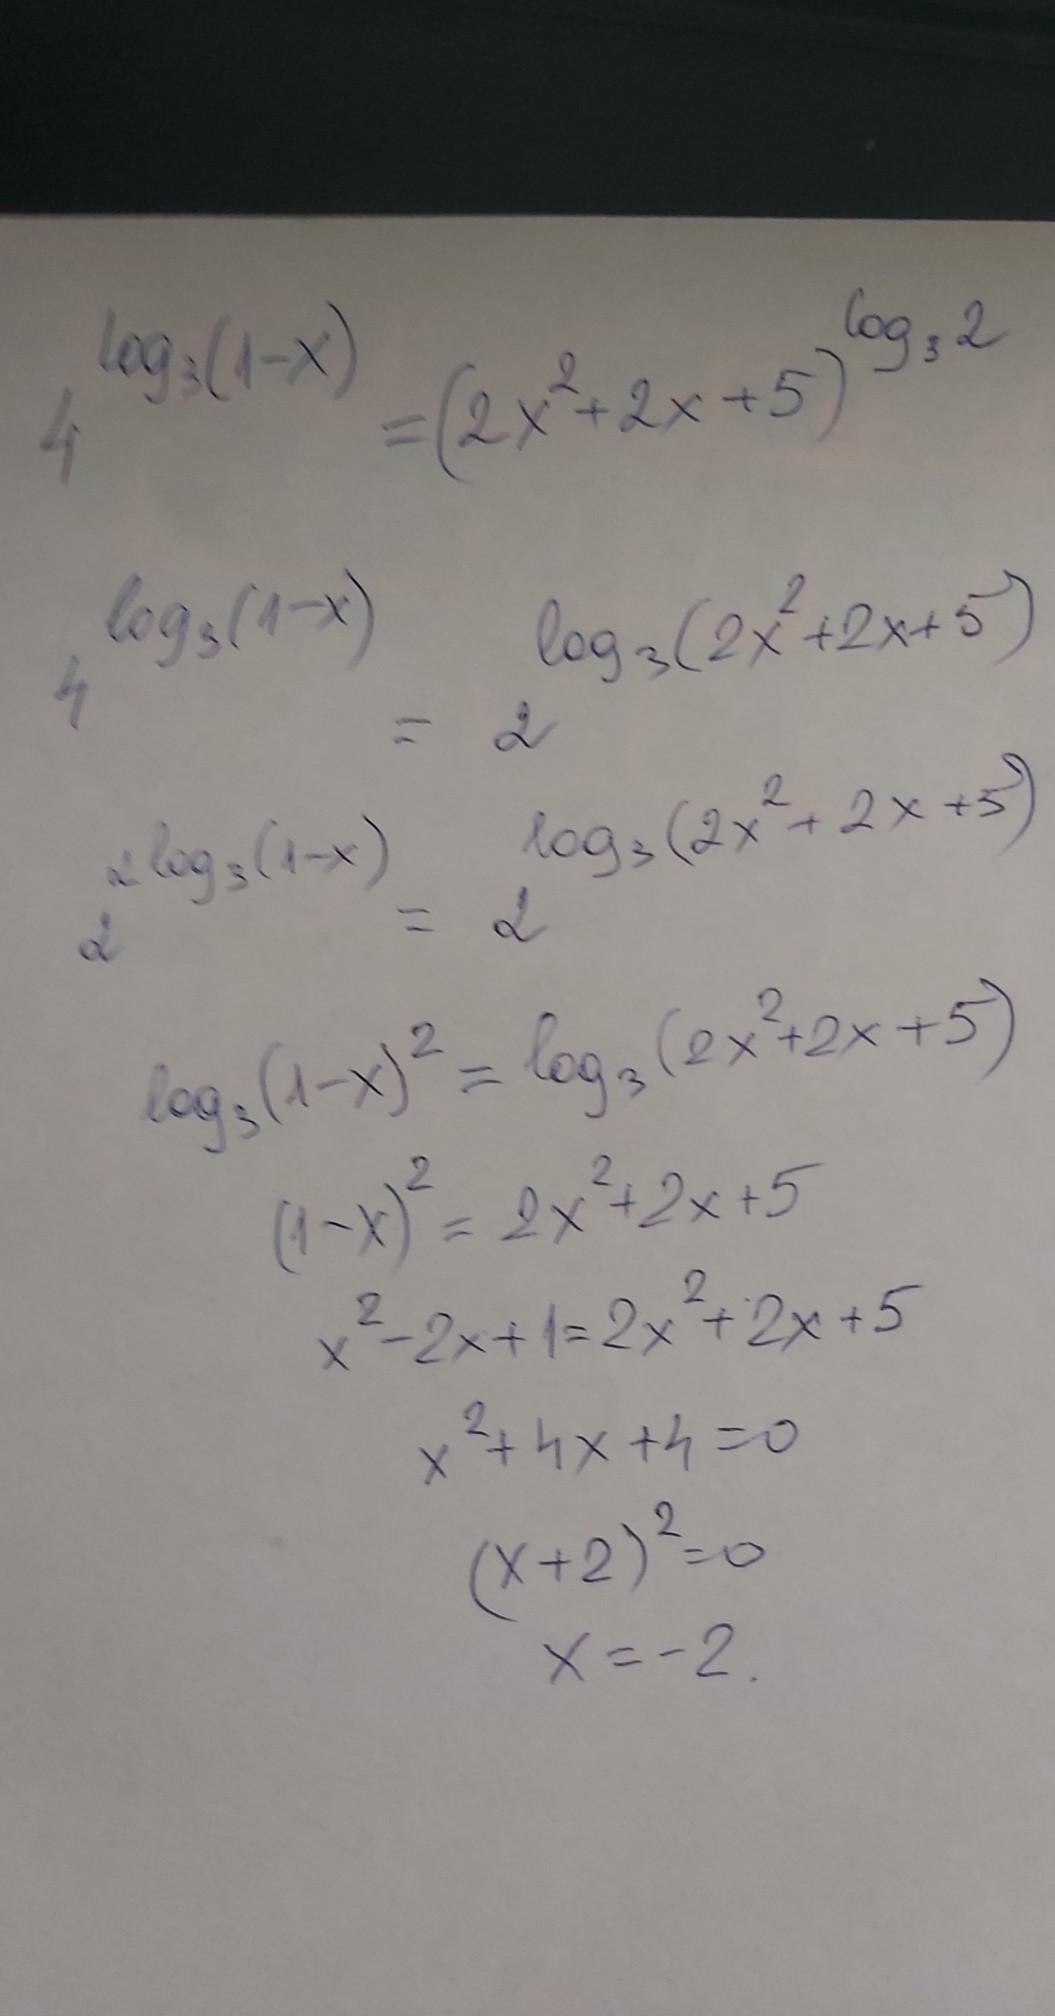 4^{log₃(1-x)} = (2x²+2x+5)^{log₃2}
4^{log₃(1-x)} = 2^{log₃(2x²+2x+5)}
2^{2log₃(1-x)} = 2^{log₃(2x²+2x+5)}
log₃(1-x)² = log₃(2x²+2x+5)
(1-x)² = 2x²+2x+5
x²-2x+1=2x²+2x+5
x²+4x+4=0
(x+2)²=0
x=-2.